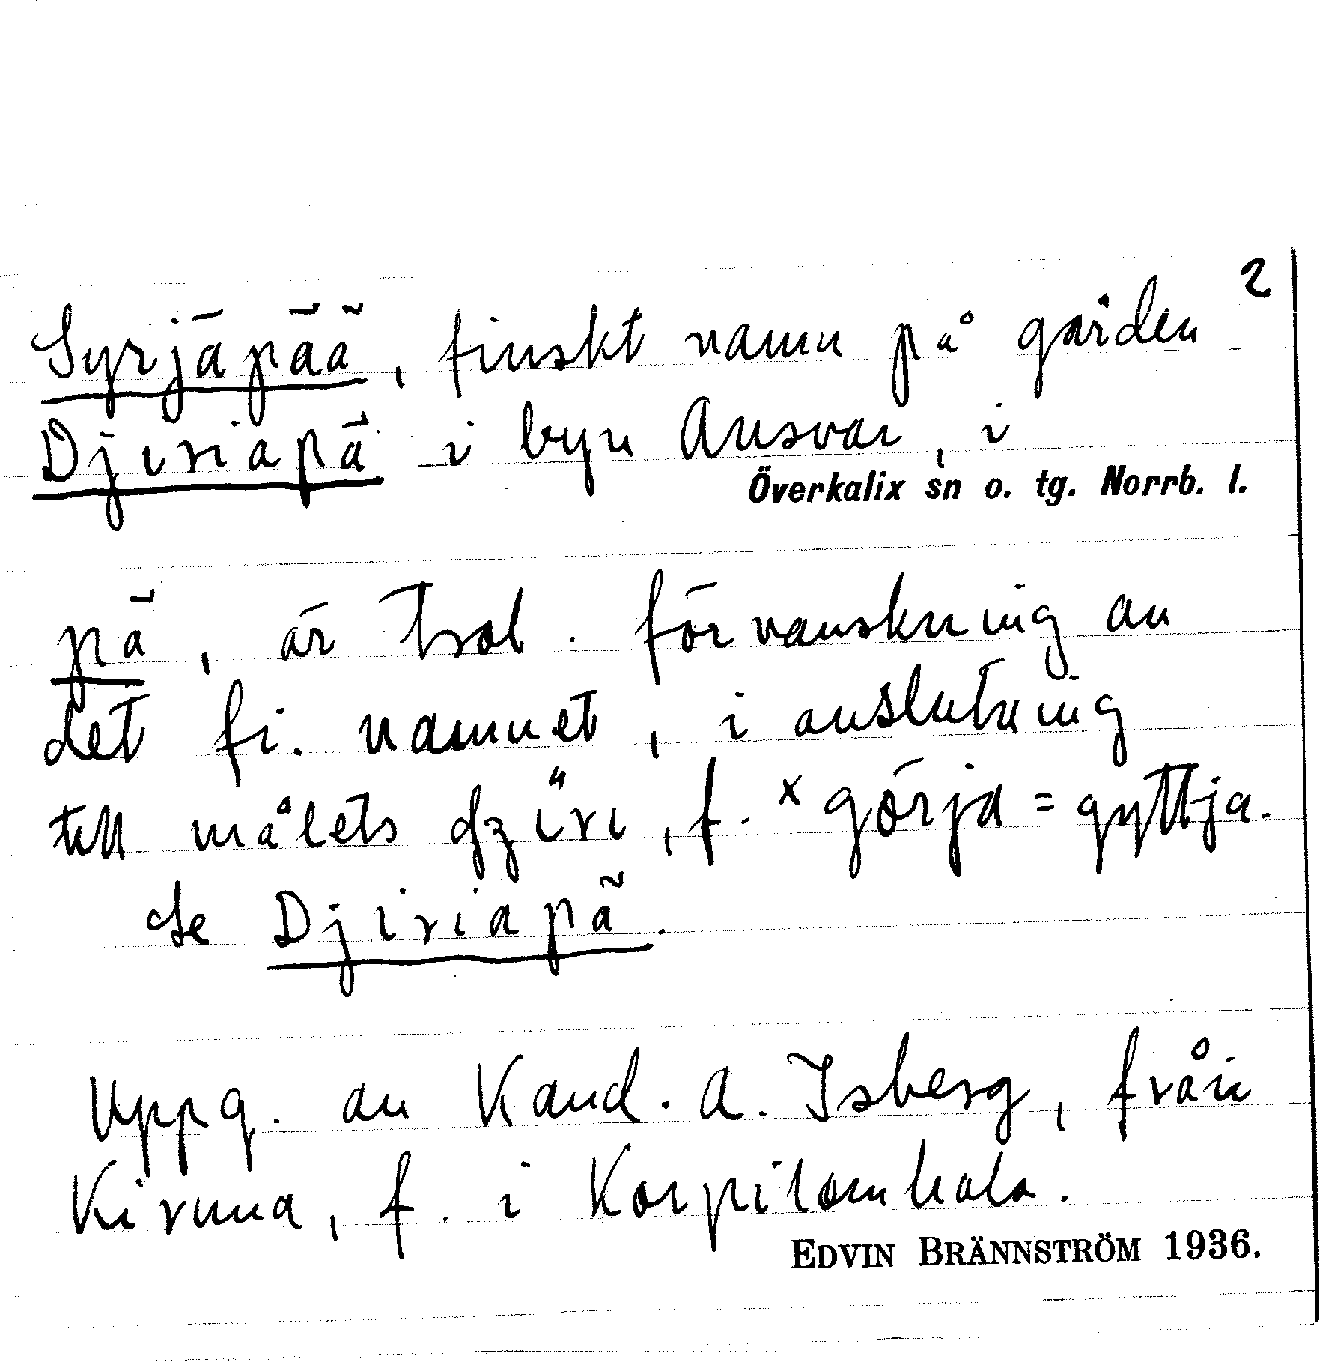 2
Syrjäpää, finskt namn på gården
Djiriapä i byn Ansvar, i
Överkalix sn o. tg. Norrb. l.
pä, är trol. förvanskning av
det fi. namnet, i anslutning
till målets dzi̋ri, f. ˣgörja = gyttja.
Se Djiriapä.
Uppg. av Kand. A. Isberg, från
Kiruna, f. i Korpilombolo.
EDVIN BRÄNNSTRÖM 1936.